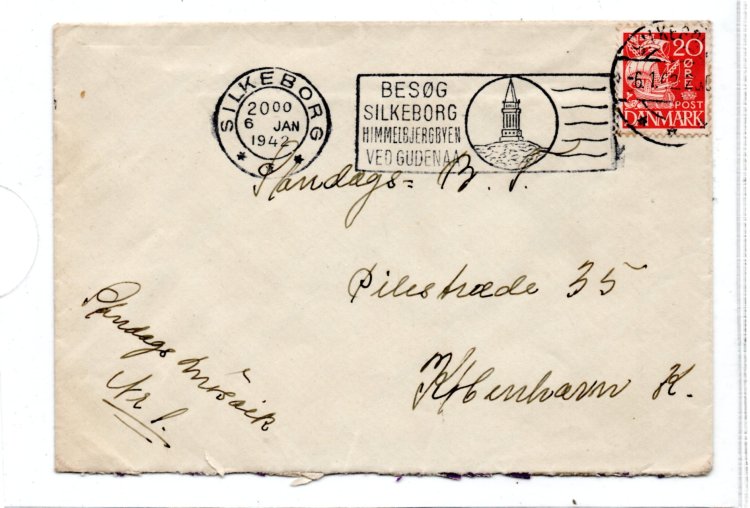 SILKEBORG
20 00
6 JAN
1942
BESØG
SILKEBORG
HIMMELBJERGBYEN
VED GUDENAA
20
ØRE
POST
DANMARK
-6.1.42.
Mandags= B. T.
Pilestræde 35
København K.
Mandags Mosaik
Nr 1.